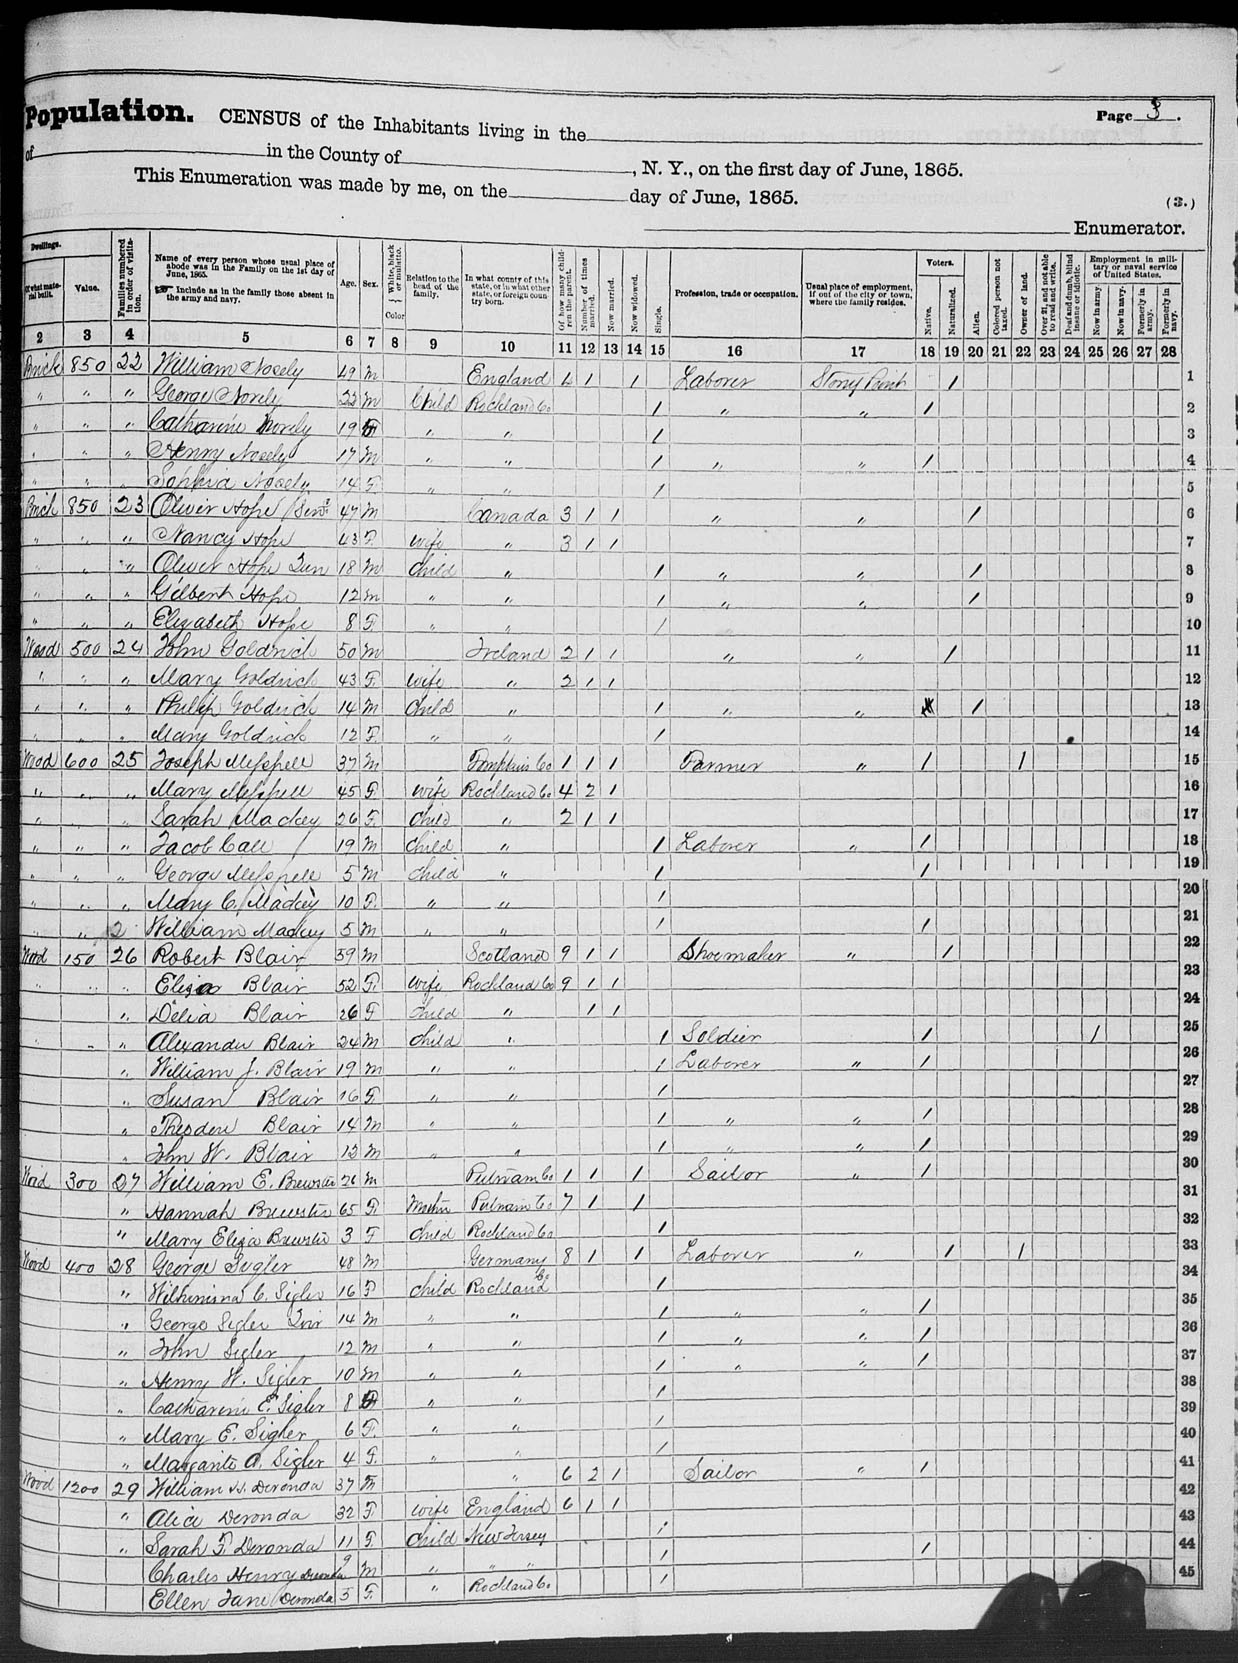 Population. CENSUS of the Inhabitants living in the Page 3.
of in the County of , N. Y., on the first day of June, 1865.
This Enumeration was made by me, on the day of June, 1865. (3.)
Enumerator.
Dwellings. Of what material built. Value. Families numbered in order of visitation. Name of every person whose usual place of abode was in the Family on the 1st day of June, 1865. Include as in the family those absent in the army and navy. Age. Sex. White, black or mulatto. Color Relation to the head of the family. In what county of this state, or in what other state, or foreign country born. Of how many children the parent. Number of times married. Now married. Now widowed. Single. Profession, trade or occupation. Usual place of employment, if out of the city or town, where the family resides. Voters. Native. Naturalized. Alien. Colored person not taxed. Owner of land. Over 21, and not able to read and write. Deaf and dumb, blind insane or idiotic. Employment in military or naval service of United States. Now in army. Now in navy. Formerly in army. Formerly in navy.
2 3 4 5 6 7 8 9 10 11 12 13 14 15 16 17 18 19 20 21 22 23 24 25 26 27 28
Brick 850 22 William Nosely 49 M England 4 1 1 Laborer Stony Point 1 1
" " " George Nosely 22 M Child Rockland Co 1 " " 1 2
" " " Catharine Nosely 19 F " " 1 3
" " " Henry Nosely 17 M " " 1 " " 1 4
" " " Sophia Nosely 14 F " " 1 5
Brick 850 23 Oliver Hope Senr 47 M Canada 3 1 1 " " 1 6
" " " Nancy Hope 43 F wife " 3 1 1 7
" " " Oliver Hope Jun 18 M Child " 1 " " 1 8
" " " Gilbert Hope 12 M " " 1 " " 1 9
" " " Elizabeth Hope 8 F " " 1 10
Wood 500 24 John Goldrich 50 M Ireland 2 1 1 " " 1 11
" " " Mary Goldrich 43 F wife " 2 1 1 12
" " " Philip Goldrich 14 M Child " 1 " " 1 13
" " " Mary Goldrich 12 F " " 1 14
Wood 600 25 Joseph 37 M Tompkins Co 1 1 1 Farmer " 1 1 15
" " " Mary 45 F wife Rockland Co 4 2 1 16
" " " Sarah Mackey 26 F Child " 2 1 1 17
" " " Jacob Call 19 M Child " 1 Laborer " 1 18
" " " George 5 M Child " 1 1 19
" " " Mary C. Mackey 10 F " " 1 20
" " 2 William Mackey 5 M " " 1 1 21
Wood 150 26 Robert Blair 59 M Scotland 9 1 1 Shoemaker " 1 22
" " " Eliza Blair 52 F wife Rockland Co 9 1 1 23
" Delia Blair 26 F Child " 1 1 24
" " " Alexander Blair 24 M Child " 1 Soldier 1 1 25
" William J. Blair 19 M " " 1 Laborer " 1 26
" Susan Blair 16 F " " 1 27
" Theodore Blair 14 M " " 1 " " 1 28
" John W. Blair 12 M " " 1 " " 1 29
Wood 300 27 William E. Brewster 26 M Putnam Co 1 1 1 Sailor " 1 30
" Hannah Brewster 65 F Mother Putnam Co 7 1 1 31
" Mary Eliza Brewster 3 F Child Rockland Co 1 32
Wood 400 28 George Sigler 48 M Germany 8 1 1 Laborer " 1 1 33
" Wilhimina C. Sigler 16 F Child Rockland Co 1 34
" George Sigler Jun 14 M " " 1 " " 1 35
" John Sigler 12 M " " 1 " " 1 36
" Henry W. Sigler 10 M " " 1 " " 1 37
" Catharine E. Sigler 8 F " " 1 38
" Mary E. Sigler 6 F " " 1 39
" Margarite A. Sigler 4 F " " 1 40
Wood 1200 29 William H. Deronda 37 M " 6 2 1 Sailor " 1 41
" Alice Deronda 32 F wife England 6 1 1 42
" Sarah F. Deronda 11 F Child New Jersey 1 43
Charles Henry Deronda 9 M " " " 1 1 44
Ellen Jane Deronda 5 F " Rockland Co 1 45